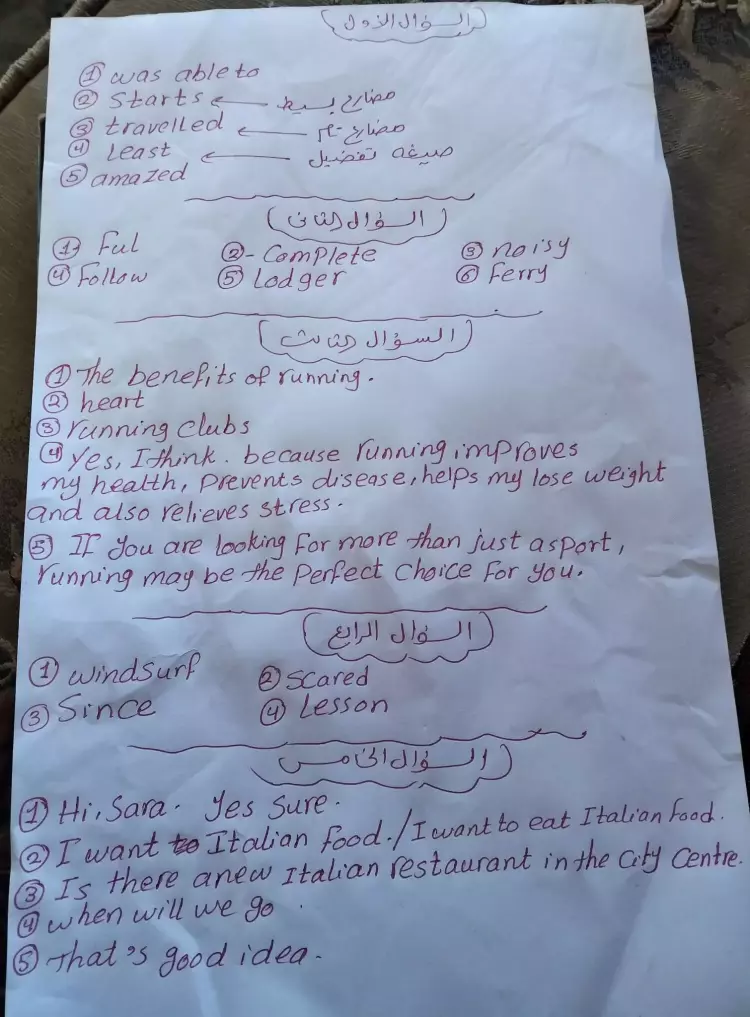 (السؤال الاول)
① was able to
② Starts ← مضارع بسيط
③ travelled ← مضارع تام
④ Least ← صيغه تفضيل
⑤ amazed
(السؤال الثانى)
① Ful ②- Complete ③ noisy
④ Follow ⑤ Lodger ⑥ Ferry
(السؤال الثالث)
① The benefits of running.
② heart
③ running clubs
④ Yes, I think. because running improves
my health, prevents disease, helps my lose weight
and also relieves stress.
⑤ If you are looking for more than just asport,
running may be the perfect choice for you.
(السؤال الرابع)
① windsurf ② Scared
③ Since ④ Lesson
(السؤال الخامس)
① Hi, Sara. Yes sure.
② I want to Italian food./I want to eat Italian food.
③ Is there anew Italian restaurant in the City Centre.
④ when will we go.
⑤ That's good idea.